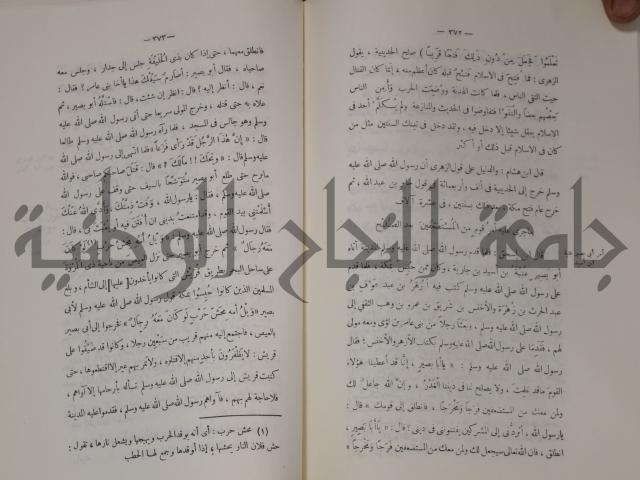 — ٣٧٢ —
تَعْلَمُوا فَجَعَلَ مِنْ دُونِ ذٰلِكَ فَتْحًا قَرِيبًا ) صلح الحديبية ، يقول
الزهرى : فما فتح فى الاسلام فتح قبله كان أعظم منه ، إنما كان القتال
حيث التقى الناس ، فلما كانت الهدنة ووضعت الحرب وأمن الناس
بعضهم بعضا والتقوا فتفاوضوا فى الحديث والمنازعة ولم يكلم أحد فى
الاسلام يعقل شيئا إلا دخل فيه ، ولقد دخل فى تينك السنتين مثل من
كان فى الاسلام قبل ذلك أو أكثر
قال ابن هشام : والدليل على قول الزهرى أن رسول الله صلى الله عليه
وسلم خرج إلى الحديبية فى ألف وأربعمائة فى قول جابر بن عبد الله ، ثم
خرج عام فتح مكة بعد ذلك بسنتين فى عشرة آلاف
ماجرى عليه أمر قوم من المستضعفين بعد الصلح
قال ابن إسحق : فلما قدم رسول الله صلى الله عليه وسلم المدينة أتاه
أبو بصير عتبة بن أسيد بن جارية ، وكان ممن حبس بمكة ، فلما قدم
على رسول الله صلى الله عليه وسلم كتب فيه أزهر بن عبد عوف بن
عبد الحرث بن زهرة والأخنس بن شريق بن عمرو بن وهب الثقفى إلى
رسول الله صلى الله عليه وسلم ، وبعثا رجلا من بنى عامر بن لؤى ومعه مولى
لهم ، فقدما على رسول الله صلى الله عليه وسلم بكتاب الأزهر والأخنس ، فقال
رسول الله صلى الله عليه وسلم « يا أبا بصير ، إنا قد أعطينا هؤلاء
القوم ماقد علمت ، ولا يصلح لنا فى ديننا الغدر ، وإن الله جاعل لك
ولمن معك من المستضعفين فرجا ومخرجا ، فانطلق إلى قومك » قال :
يارسول الله ، أتردنى إلى المشركين يفتنوننى فى دينى ؟ قال : « يا أبا بصير ،
انطلق ، فان الله تعالى سيجعل لك ولمن معك من المستضعفين فرجا ومخرجا »
— ٣٧٣ —
فانطلق معهما ، حتى إذا كان بذى الحليفة جلس إلى جدار ، وجلس معه
صاحباه ، فقال أبو بصير : أصارم سيفك هذا يا أخا بنى عامر ؟ فقال :
نعم ، قال : أنظر إليه ؟ قال : انظر إن شئت ، قال : فاستله أبو بصير ، ثم
علاه به حتى قتله ، وخرج المولى سريعا حتى أتى رسول الله صلى الله عليه
وسلم وهو جالس فى المسجد ، فلما رآه رسول الله صلى الله عليه وسلم طالعا
قال : « إن هذا الرجل قد رأى فزعا » فلما انتهى إلى رسول الله صلى الله
عليه وسلم قال : « ويحك !! مالك ؟ » قال : قتل صاحبكم صاحبى ، فوالله
مابرح حتى طلع أبو بصير متوشحا بالسيف حتى وقف على رسول الله
صلى الله عليه وسلم ، فقال : يارسول الله ، وفت ذمتك وأدى الله عنك
أسلمتنى بيد القوم ، وقد امتنعت بدينى أن أفتن فيه أو يعبث بى ، قال :
فقال رسول الله صلى الله عليه وسلم « ويل أمه محش حرب لو كان
معه رجال » ثم خرج أبو بصير حتى نزل العيص من ناحية ذى المروة
على ساحل البحر بطريق قريش التى كانوا يأخذون [عليها] إلى الشأم ، وبلغ
المسلمين الذين كانوا حبسوا بمكة قول رسول الله صلى الله عليه وسلم لأبى
بصير « ويل أمه محش حرب لو كان معه رجال » فخرجوا إلى أبى بصير
بالعيص ، فاجتمع إليه منهم قريب من سبعين رجلا ، وكانوا قد ضيقوا على
قريش : لا يظفرون بأحد منهم إلا قتلوه ، ولا تمر بهم عير إلا اقتطعوها ، حتى
كتبت قريش إلى رسول الله صلى الله عليه وسلم تسأله بأرحامها إلا آواهم ،
فلا حاجة لهم بهم ، فآواهم رسول الله صلى الله عليه وسلم ، فقدموا عليه المدينة
(١) محش حرب : أى أنه يوقد الحرب ويهيجها ويشعل نارها ، تقول :
حش فلان النار يحشها ع إذا أوقدها وجمع لهــا الحطب
جامعة النجاح الوطنية